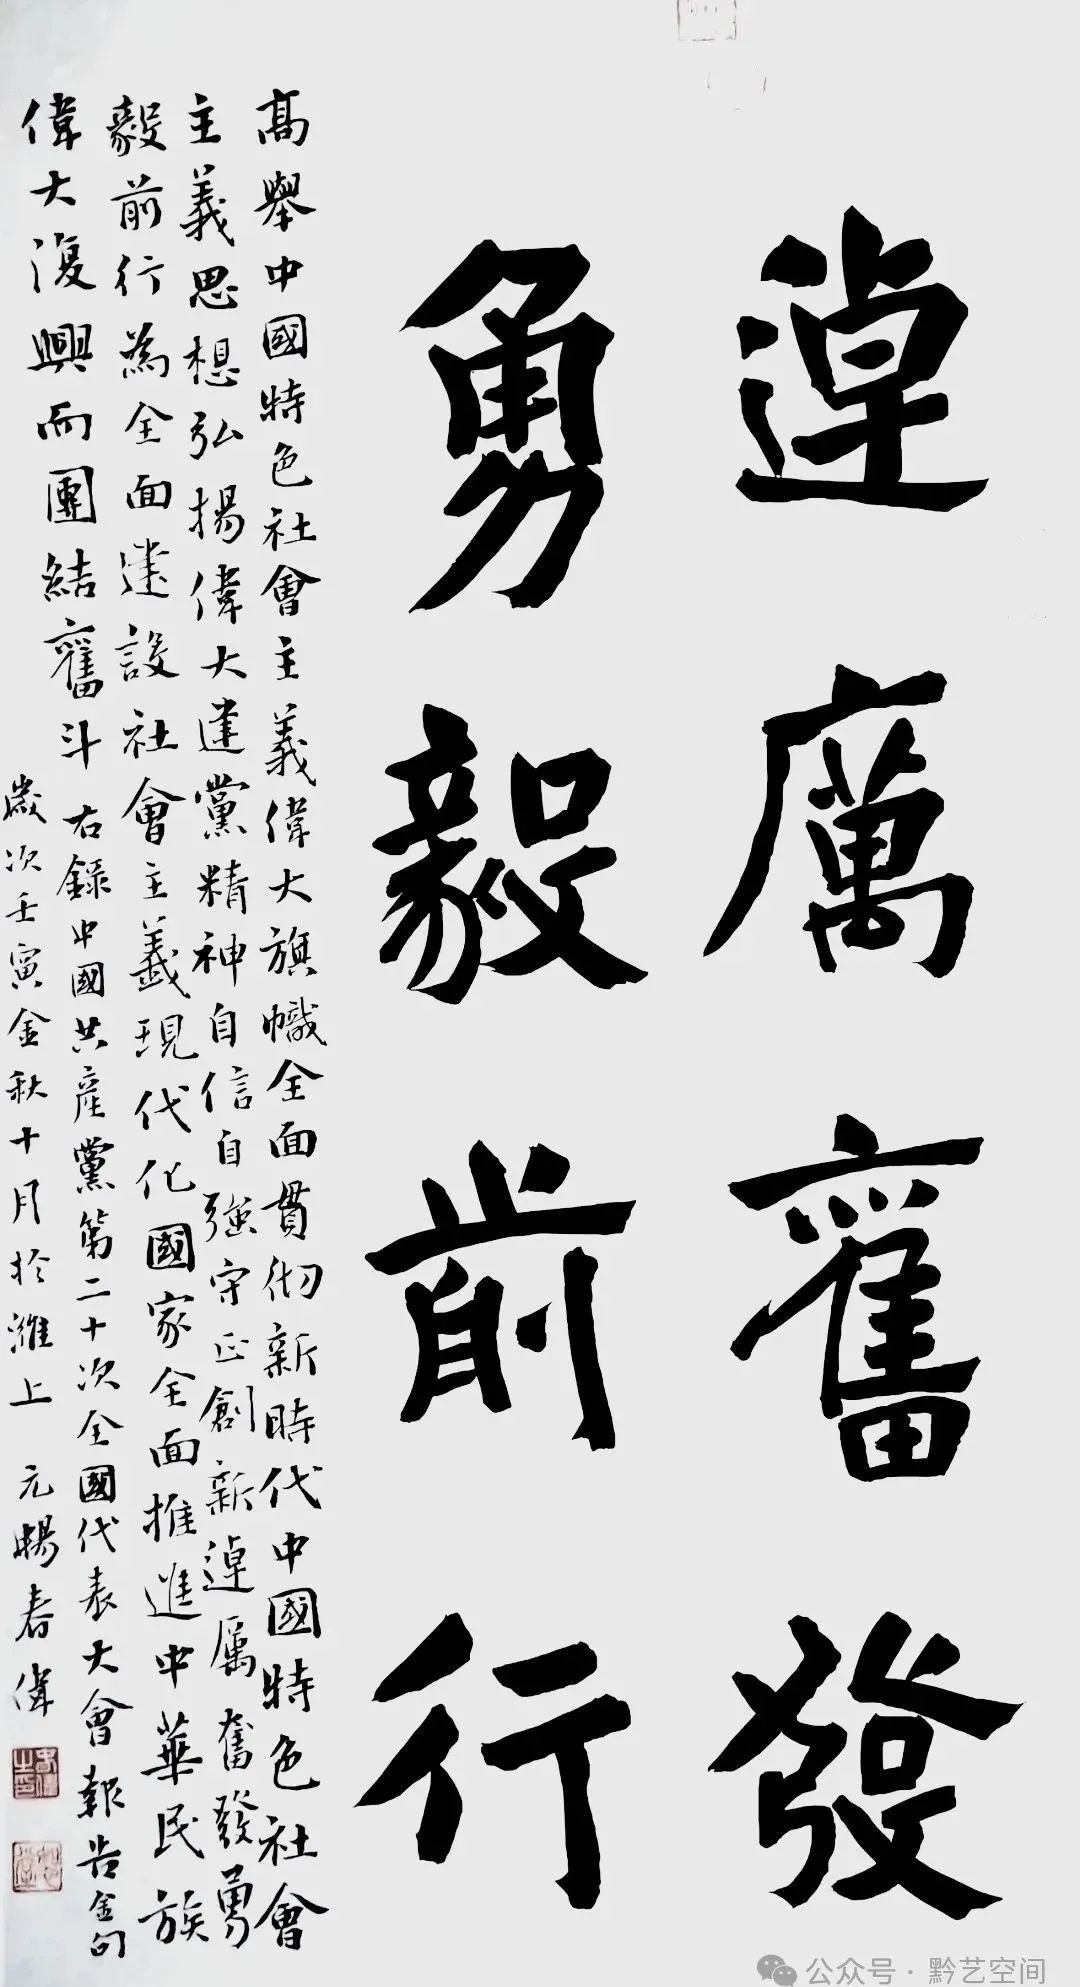 逴厲奮發
勇毅前行
高舉中國特色社會主義偉大旗幟全面貫彻新時代中國特色社會
主義思想弘揚偉大建黨精神自信自強守正創新逴厲奮發勇
毅前行為全面建設社會主義現代化國家全面推進中華民族
偉大復興而團結奮斗 右錄中國共産黨第二十次全國代表大會報告金句
歲次壬寅金秋十月於濰上 元暢春偉
公众号 · 黔艺空间